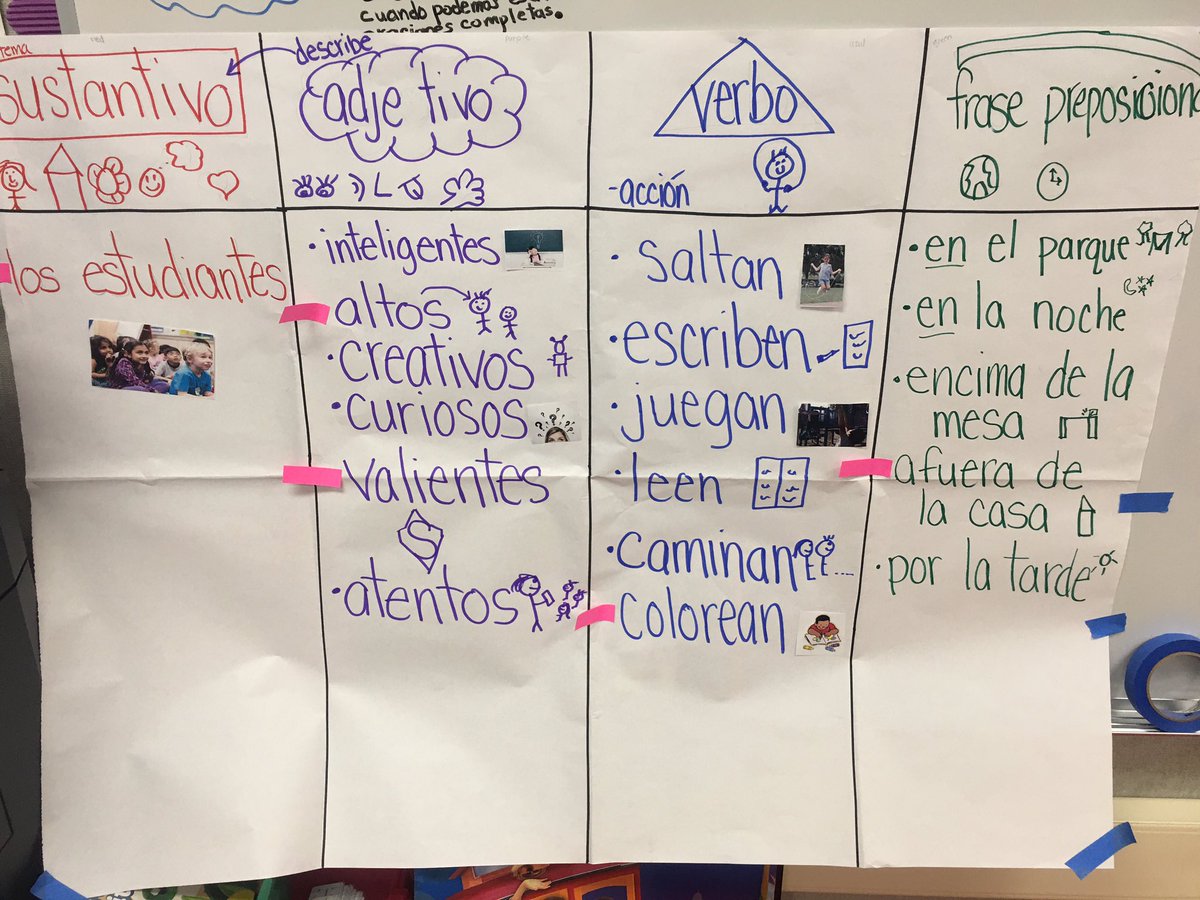 cuando podemos
oraciones completas.
tema
sustantivo
describe
adjetivo
verbo
-acción
frase preposicional
los estudiantes
• inteligentes
altos
• creativos
• curiosos
valientes
S
• atentos
• saltan
• escriben
• juegan
• leen
• caminan
colorean
• en el parque
• en la noche
• encima de la
mesa
afuera de
la casa
• por la tarde